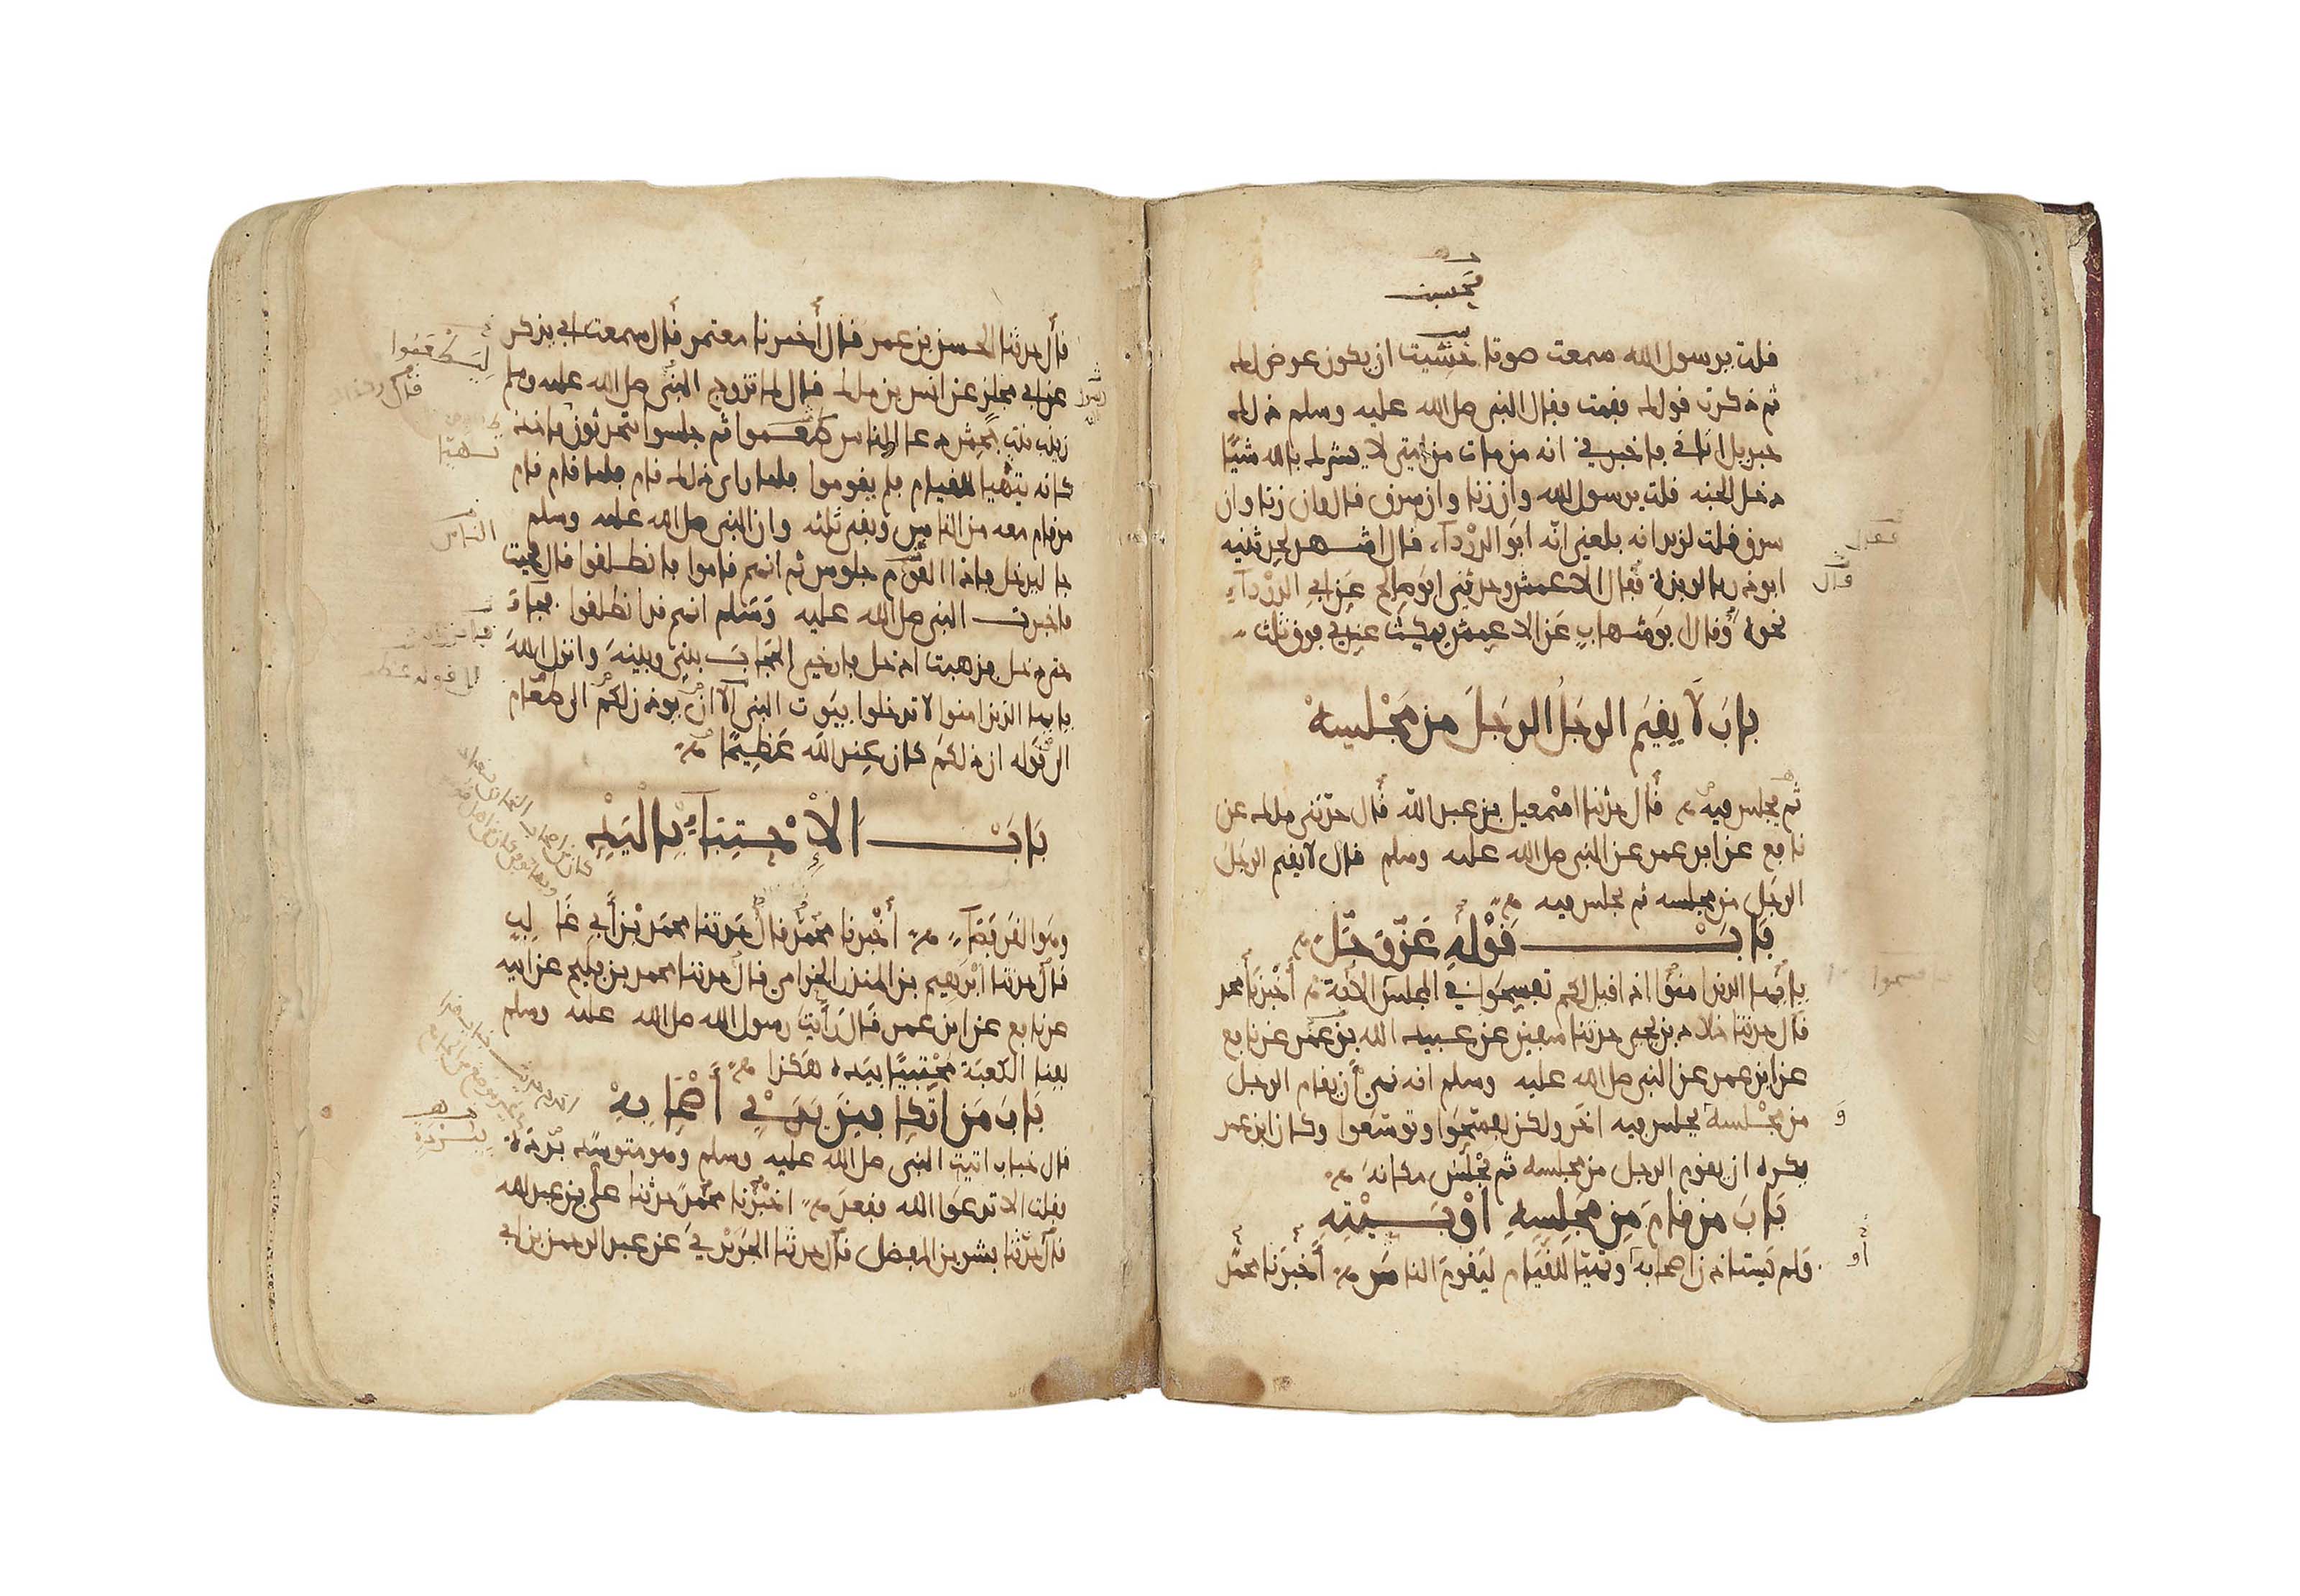 فحسبت
قلت يرسول الله سمعت صوتا خشيت ان يكون عرض لك
ثم ذكرت قولك فقمت فقال النبي صلى الله عليه وسلم ذلك
جبريل اتاني فاخبرني انه من مات من امتي لا يشرك بالله شيئا
دخل الجنة قلت يرسول الله وان زنا وان سرق قال وان زنا وان
سرق قلت لزيد انه بلغني انه ابو الدرداء فقال اشهد لحدثنيه
ابو ذر بالربذة فقال الاعمش وحدثني ابو صالح عن ابي الدرداء
نحوه وقال ابو شهاب عن الاعمش يمكث عندي فوق ثلث
باب لا يقيم الرجل الرجل من مجلسه
ثم يجلس فيه قال حدثنا اسمعيل بن عبد الله قال حدثني ملك عن
نافع عن ابن عمر عن النبي صلى الله عليه وسلم قال لا يقيم الرجل
الرجل من مجلسه ثم يجلس فيه
باب قوله عز وجل
يايها الذين امنوا اذا قيل لكم تفسحوا في المجلس الاية اخبرنا محمد
قال حدثنا خلاد بن يحيى حدثنا سفين عن عبيد الله بن عمر عن نافع
عن ابن عمر عن النبي صلى الله عليه وسلم انه نهى ان يقام الرجل
من مجلسه يجلس فيه اخر ولكن تفسحوا وتوسعوا وكان ابن عمر
يكره ان يقوم الرجل من مجلسه ثم يجلس مكانه
باب من قام من مجلسه او بيته
ولم يستاذن اصحابه وتهيا للقيام ليقوم الناس اخبرنا محمد
فقال
قال
و
أو
قال حدثنا الحسن بن عمر قال أخبرنا معتمر قال سمعت ابي يذكر
عن ابي مجلز عن انس بن ملك قال لما تزوج النبي صلى الله عليه وسلم
زينب بنت جحش دعا الناس طعموا ثم جلسوا يتحدثون فاخذ
كانه يتهيا للقيام فلم يقوموا فلما راى ذلك قام فلما قام قام
من قام معه من الناس وبقي ثلثه وان النبي صلى الله عليه وسلم
جا ليدخل فاذا القوم جلوس ثم انهم قاموا فانطلقوا قال فجيت
فاخبرت النبي صلى الله عليه وسلم انهم قد انطلقوا فجاء
حتى دخل فذهبت ادخل فارخى الحجاب بيني وبينه وانزل الله
يايها الذين امنوا لا تدخلوا بيوت النبي الا ان يوذن لكم الى طعام
الى قوله ان ذلكم كان عند الله عظيما
باب الاحتباء باليد
وهو القرفصاء اخبرنا محمد قال حدثنا محمد بن أبي غالب
قال حدثنا ابرهيم بن المنذر الحزامي قال حدثنا محمد بن فليح عن ابيه
عن نافع عن ابن عمر قال رأيت رسول الله صلى الله عليه وسلم
بفنا الكعبة محتبيا بيده هكذا
باب من اتكا بين يدي أصحابه
قال خباب اتيت النبي صلى الله عليه وسلم وهو متوسد بردة
فقلت الا تدعو الله فقعد اخبرنا محمد حدثنا علي بن عبد الله
قال حدثنا بشر بن المفضل قال حدثنا الجريري عن عبد الرحمن بن ابي
الناس